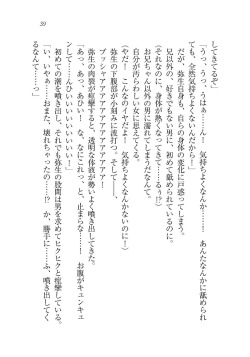 39
してきてるぞ」
「うっ、うっ、うはぁ……ん！　気持ちよくなんか……　あんたなんかに舐められ
ても、全然気持ちよくなんてないんだからー」
だが、弥生自身も、自らの身体の変化に戸惑ってしまう。
兄以外の、好きでもない男に、初めて舐められているのに。
（それなのに、身体が熱くなってきてる……　だめ……だめぇ！
お兄ちゃん以外の男に濡れてしまうだなんて。
自分が汚らわしい女に成り下がった気がしてくる。
（やだ！　そんなのイヤだー！　気持ちよくなんかないのにー！）
弥生の下腹部が小刻みに波打つ。そして、
プッシャアアアアアアアアアアアアアアアアア！
弥生の肉裂が痙攣すると、透明な体液が勢いよく噴き出してきた。
「あっ、あっ、あひっ！　な、なにこれっ……　と、止まらなーい！　お腹がキュンキュ
ンしてるぅ！　ひいいいいい！」
初めての潮を噴き出し、それでも弥生の股間は男を求めてヒクヒクと痙攣している。
「い、いやぁ、おまた、壊れちゃったの……!?　か、勝手に……ぷ、噴き出してく
るなんて……っ」